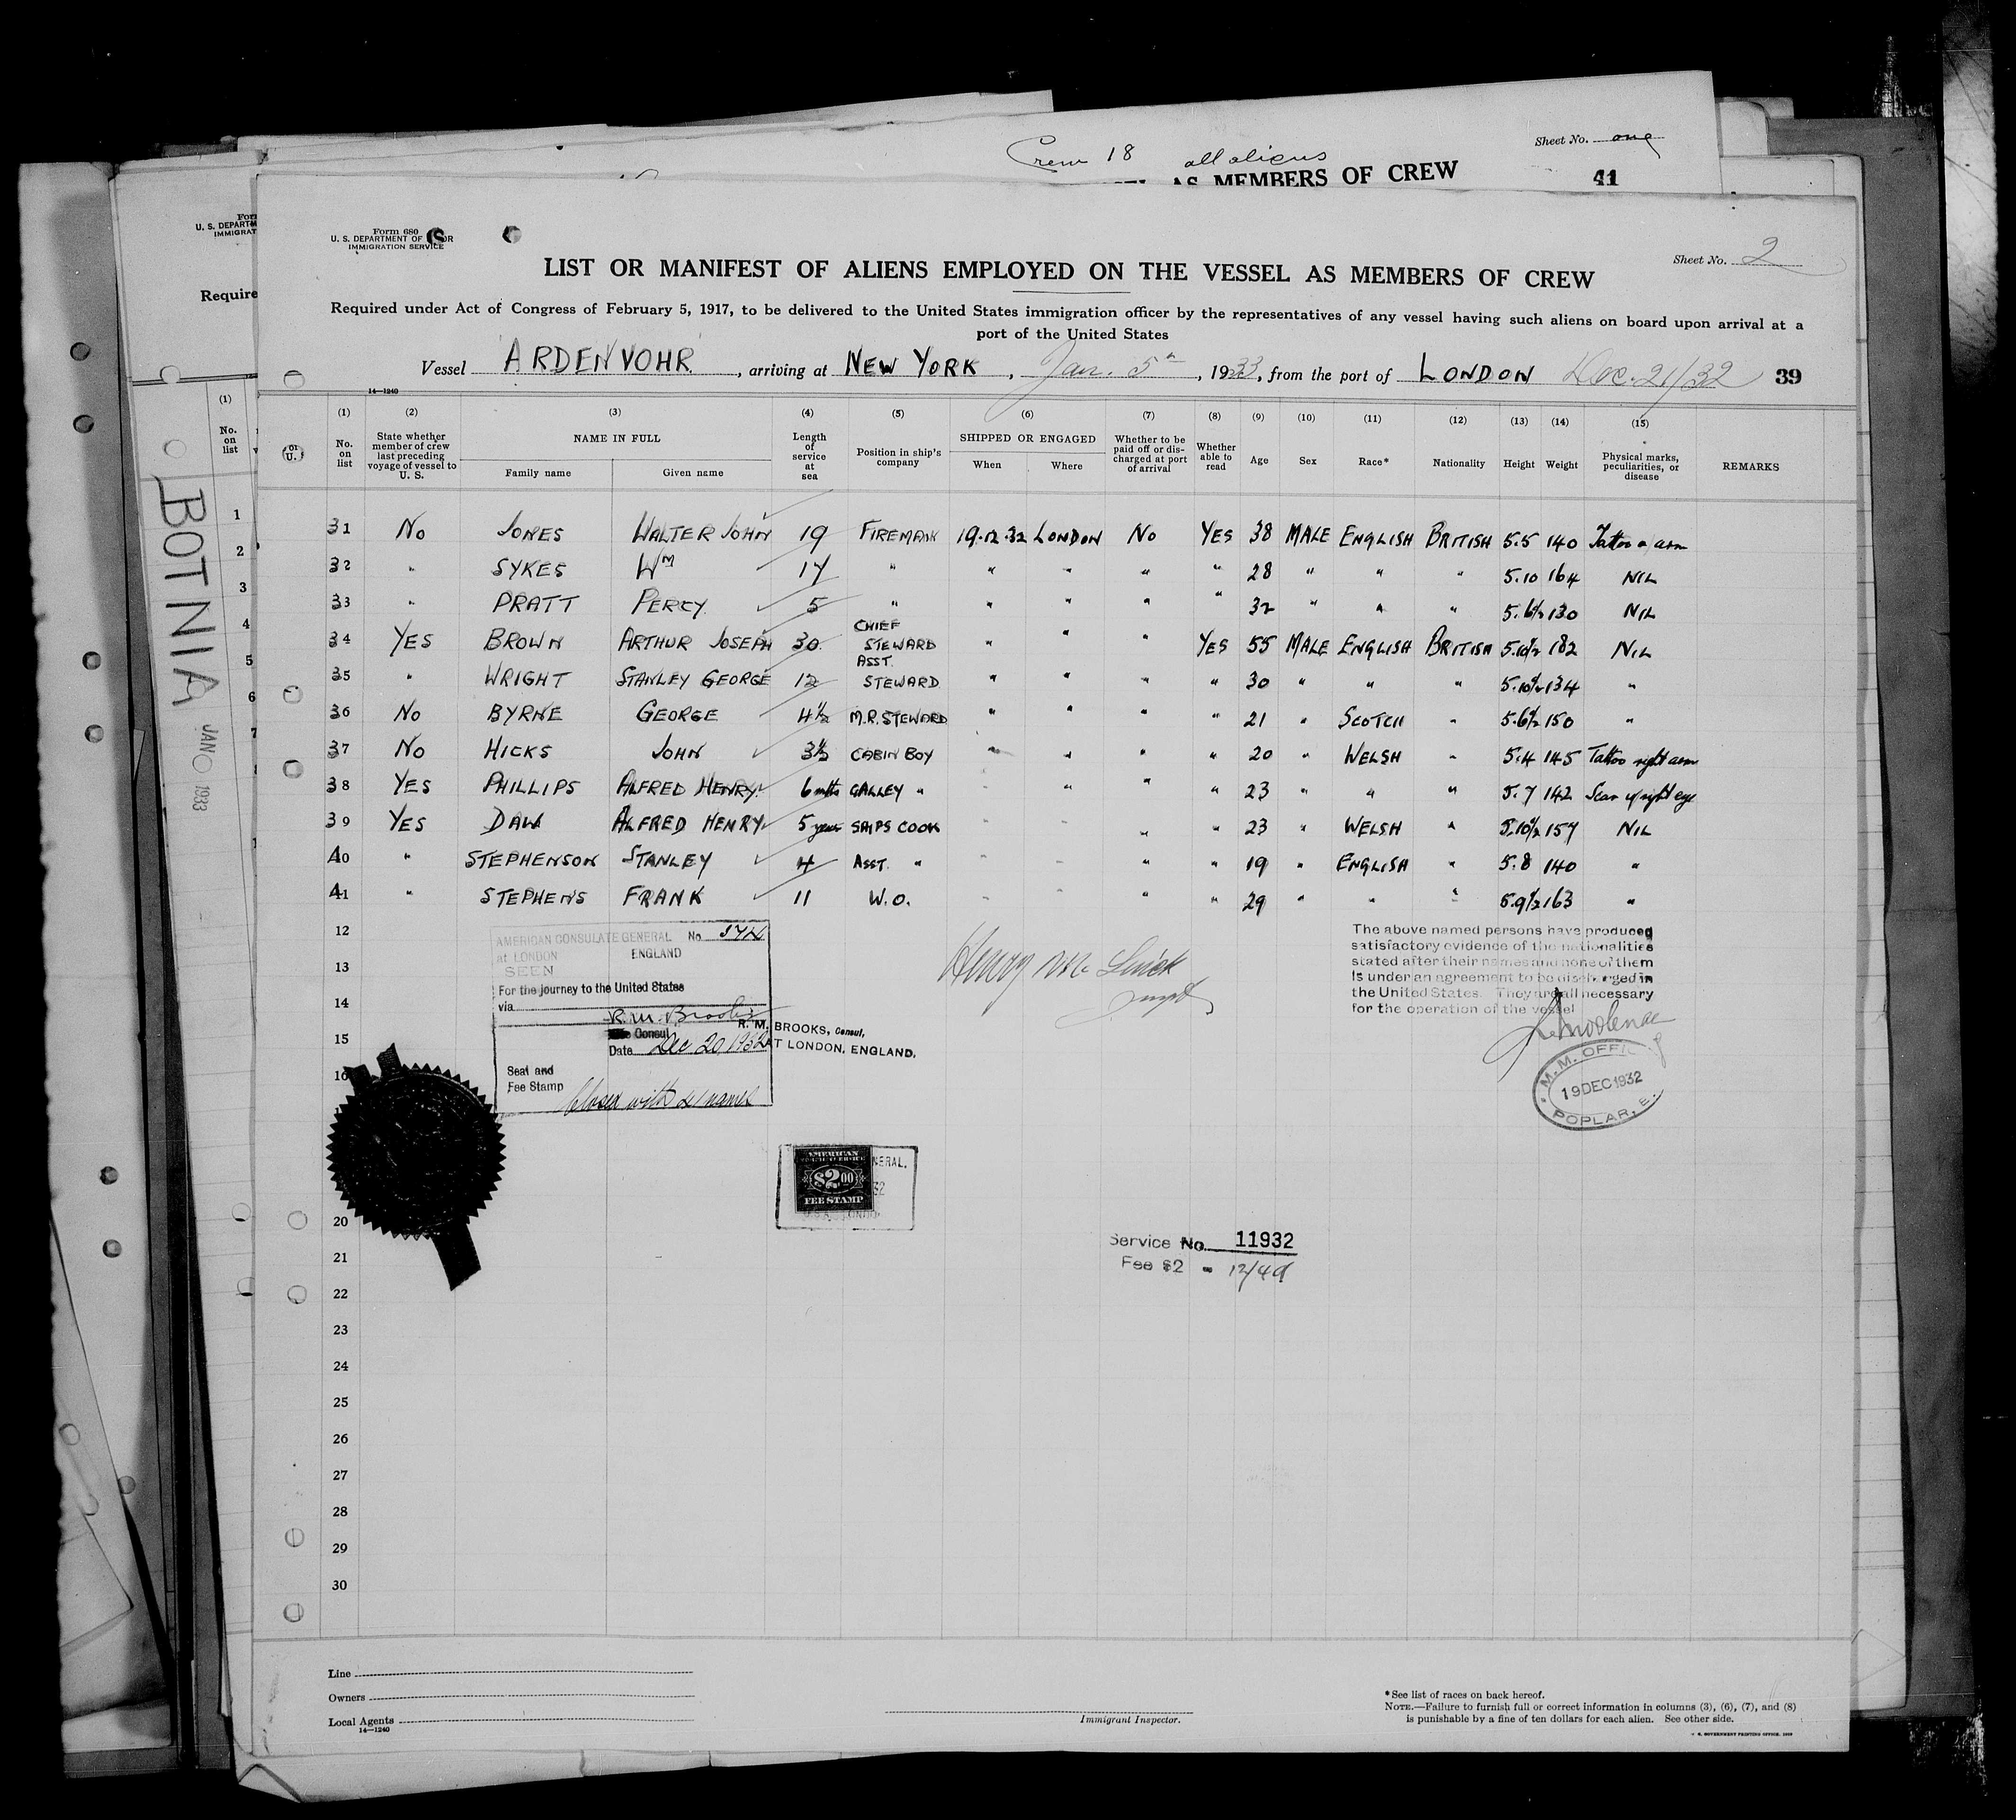 Crew 18 all aliens
Sheet No. one
AS MEMBERS OF CREW
41
Form 680
U. S. DEPARTMENT OF OR
IMMIGRATION SERVICE
Sheet No. 2
LIST OR MANIFEST OF ALIENS EMPLOYED ON THE VESSEL AS MEMBERS OF CREW
Required under Act of Congress of February 5, 1917, to be delivered to the United States immigration officer by the representatives of any vessel having such aliens on board upon arrival at a
port of the United States
Vessel ARDENVOHR, arriving at NEW YORK, Jan. 5th, 1933, from the port of LONDON Dec. 21/32 39
14—1240
(1) (2) (3) (4) (5) (6) (7) (8) (9) (10) (11) (12) (13) (14) (15)
No. on list
State whether member of crew last preceding voyage of vessel to U. S.
NAME IN FULL
Family name
Given name
Length of service at sea
Position in ship's company
SHIPPED OR ENGAGED
When
Where
Whether to be paid off or discharged at port of arrival
Whether able to read
Age
Sex
Race*
Nationality
Height
Weight
Physical marks, peculiarities, or disease
REMARKS
31 NO JONES WALTER JOHN 19 FIREMAN 19.12.32 LONDON NO YES 38 MALE ENGLISH BRITISH 5.5 140 Tattoo arm
32 " SYKES WM 17 " " " " " 28 " " " 5.10 164 NIL
33 " PRATT PERCY 5 " " " " " 32 " " " 5.6½ 130 NIL
34 YES BROWN ARTHUR JOSEPH 30 CHIEF STEWARD " " " YES 55 MALE ENGLISH BRITISH 5.10½ 182 NIL
35 " WRIGHT STANLEY GEORGE 12 ASST. STEWARD " " " " 30 " " " 5.10½ 134 "
36 NO BYRNE GEORGE 4½ M.R. STEWARD " " " " 21 " SCOTCH " 5.6½ 150 "
37 NO HICKS JOHN 3½ CABIN BOY " " " " 20 " WELSH " 5.4 145 Tattoo right arm
38 YES PHILLIPS ALFRED HENRY 6 mths GALLEY " " " " 23 " " " 5.7 142 Scar right eye
39 YES DAW ALFRED HENRY 5 years SHIPS COOK " " " " 23 " WELSH " 5.10½ 157 NIL
40 " STEPHENSON STANLEY 4 ASST. " " " " " 19 " ENGLISH " 5.8 140 "
41 " STEPHENS FRANK 11 W.O. " " " " 29 " " " 5.9½ 163 "
12
13
14
15
16
20
21
22
23
24
25
26
27
28
29
30
AMERICAN CONSULATE GENERAL No
at LONDON ENGLAND
SEEN
For the journey to the United States
via
R. M. Brooks
Consul
R. M. BROOKS, Consul,
Date Dec 20 1932
AT LONDON, ENGLAND.
Seal and
Fee Stamp
Closed with 41 names
The above named persons have produced
satisfactory evidence of the nationalities
stated after their names and none of them
is under an agreement to be discharged in
the United States. They are all necessary
for the operation of the vessel
M. M. OFFICE
19 DEC 1932
POPLAR, E.
AMERICAN
$2.00
FEE STAMP
Service No. 11932
Fee $2 = 12/49
Line
Owners
Local Agents
14—1240
Immigrant Inspector.
*See list of races on back hereof.
NOTE.—Failure to furnish full or correct information in columns (3), (6), (7), and (8)
is punishable by a fine of ten dollars for each alien. See other side.
U. S. DEPARTM
IMMIGRAT
Require
(1)
No. on list
1
2
3
4
5
6
7
BOTNIA
JAN 1933